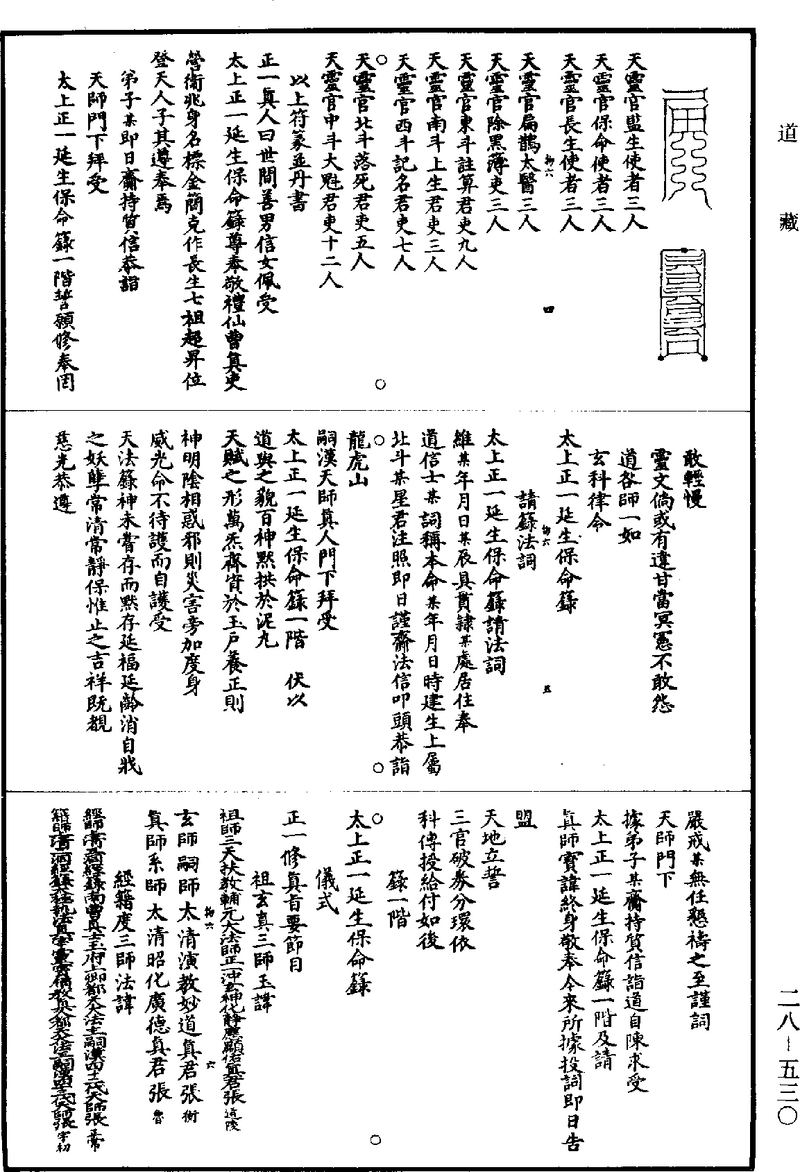 道藏
天靈官監生使者三人
天靈官保命使者三人
天靈官長生使者三人
天靈官扁鵲太醫三人
天靈官除黑簿吏三人
天靈官東斗註算君吏九人
天靈官南斗上生君吏三人
天靈官西斗記名君吏七人
天靈官北斗落死君吏五人
天靈官中斗大魁君吏十二人
以上符篆並丹書
正一真人曰世間善男信女佩受
太上正一延生保命籙尊奉敬禮仙曹真吏
營衛兆身名標金簡克作長生七祖超昇位
登天人子其遵奉焉
弟子某即日齋持質信恭詣
天師門下拜受
太上正一延生保命籙一階誓願修奉罔
敢輕慢
靈文倘或有違甘當冥憲不敢怨
道咎師一如
玄科律令
太上正一延生保命籙
請籙法詞
太上正一延生保命籙請法詞
維某年月日某辰真貫隸某處居住奉
道信士某詞稱本命某年月日時建生上屬
北斗某星君注照即日謹齋法信叩頭恭詣
龍虎山
嗣漢天師真人門下拜受
太上正一延生保命籙一階 伏以
道與之貌百神默拱於泥丸
天賦之形萬炁齋資於玉戶養正則
神明陰相惑邪則災害旁加度身
威光命不待護而自護受
天法籙神未嘗存而默存延福延齡消自戕
之妖孽常清常靜保惟止之吉祥既覩
慈光恭遵
嚴戒某無任懇禱之至謹詞
天師門下
據弟子某齋持質信詣道自陳求受
太上正一延生保命籙一階及請
真師寶諱終身敬奉今來所據投詞即日告
盟
天地立誓
三官破券分環依
科傳授給付如後
籙一階
太上正一延生保命籙
儀式
正一修真旨要節目
祖玄真三師玉諱
祖師三天扶教輔元大法師正一沖玄神化靜應顯佑真君張道陵
玄師嗣師太清演教妙道真君張衡
真師系師太清昭化廣德真君張魯
經籍度三師法諱
二八－五三〇